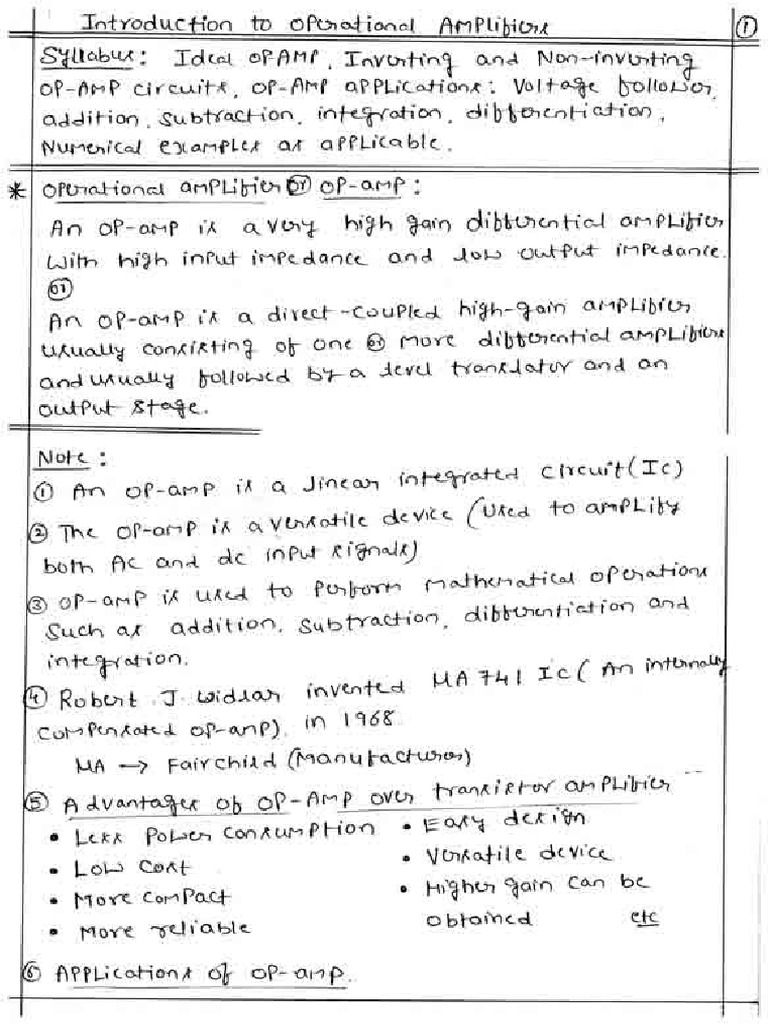 Introduction to Operational Amplifiers
①
Syllabus: Ideal OPAMP, Inverting and Non-inverting
OP-AMP circuits, OP-AMP applications: Voltage follower,
addition, Subtraction, integration, differentiation,
Numerical examples as applicable.
* Operational amplifier (or) OP-amp:
An OP-amp is a very high gain differential amplifier
with high input impedance and low output impedance.
(or)
An OP-amp is a direct-coupled high-gain amplifier
usually consisting of one (or) more differential amplifiers
and usually followed by a level translator and an
output stage.
Note:
① An OP-amp is a linear integrated circuit (Ic)
② The OP-amp is a versatile device (Used to amplify
both Ac and dc input signals)
③ OP-amp is used to perform mathematical operations
such as addition, subtraction, differentiation and
integration.
④ Robert J. Widlar invented MA 741 Ic (An internally
compensated OP-amp) in 1968.
MA → Fairchild (Manufacturer)
⑤ Advantages of OP-AMP over transistor amplifier
• Less power consumption • Easy design
• Low cost • Versatile device
• More compact • Higher gain can be
• More reliable obtained etc
⑥ Applications of OP-amp.